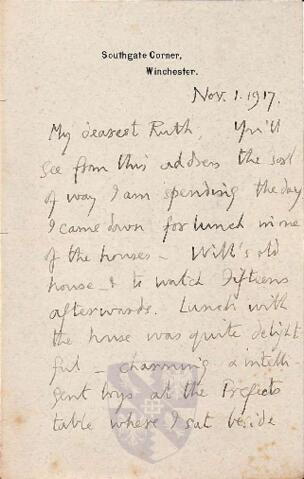 Southgate Corner,
Winchester.
Nov. 1. 1917.
My dearest Ruth, You'll
see from this address the sort
of way I am spending the day
I came down for lunch in one
of the houses - Will's old
house - & to watch Fifteens
afterwards. Lunch with
the house was quite delight
ful - charming & intelli-
gent boys at the Prefects
table where I sat beside